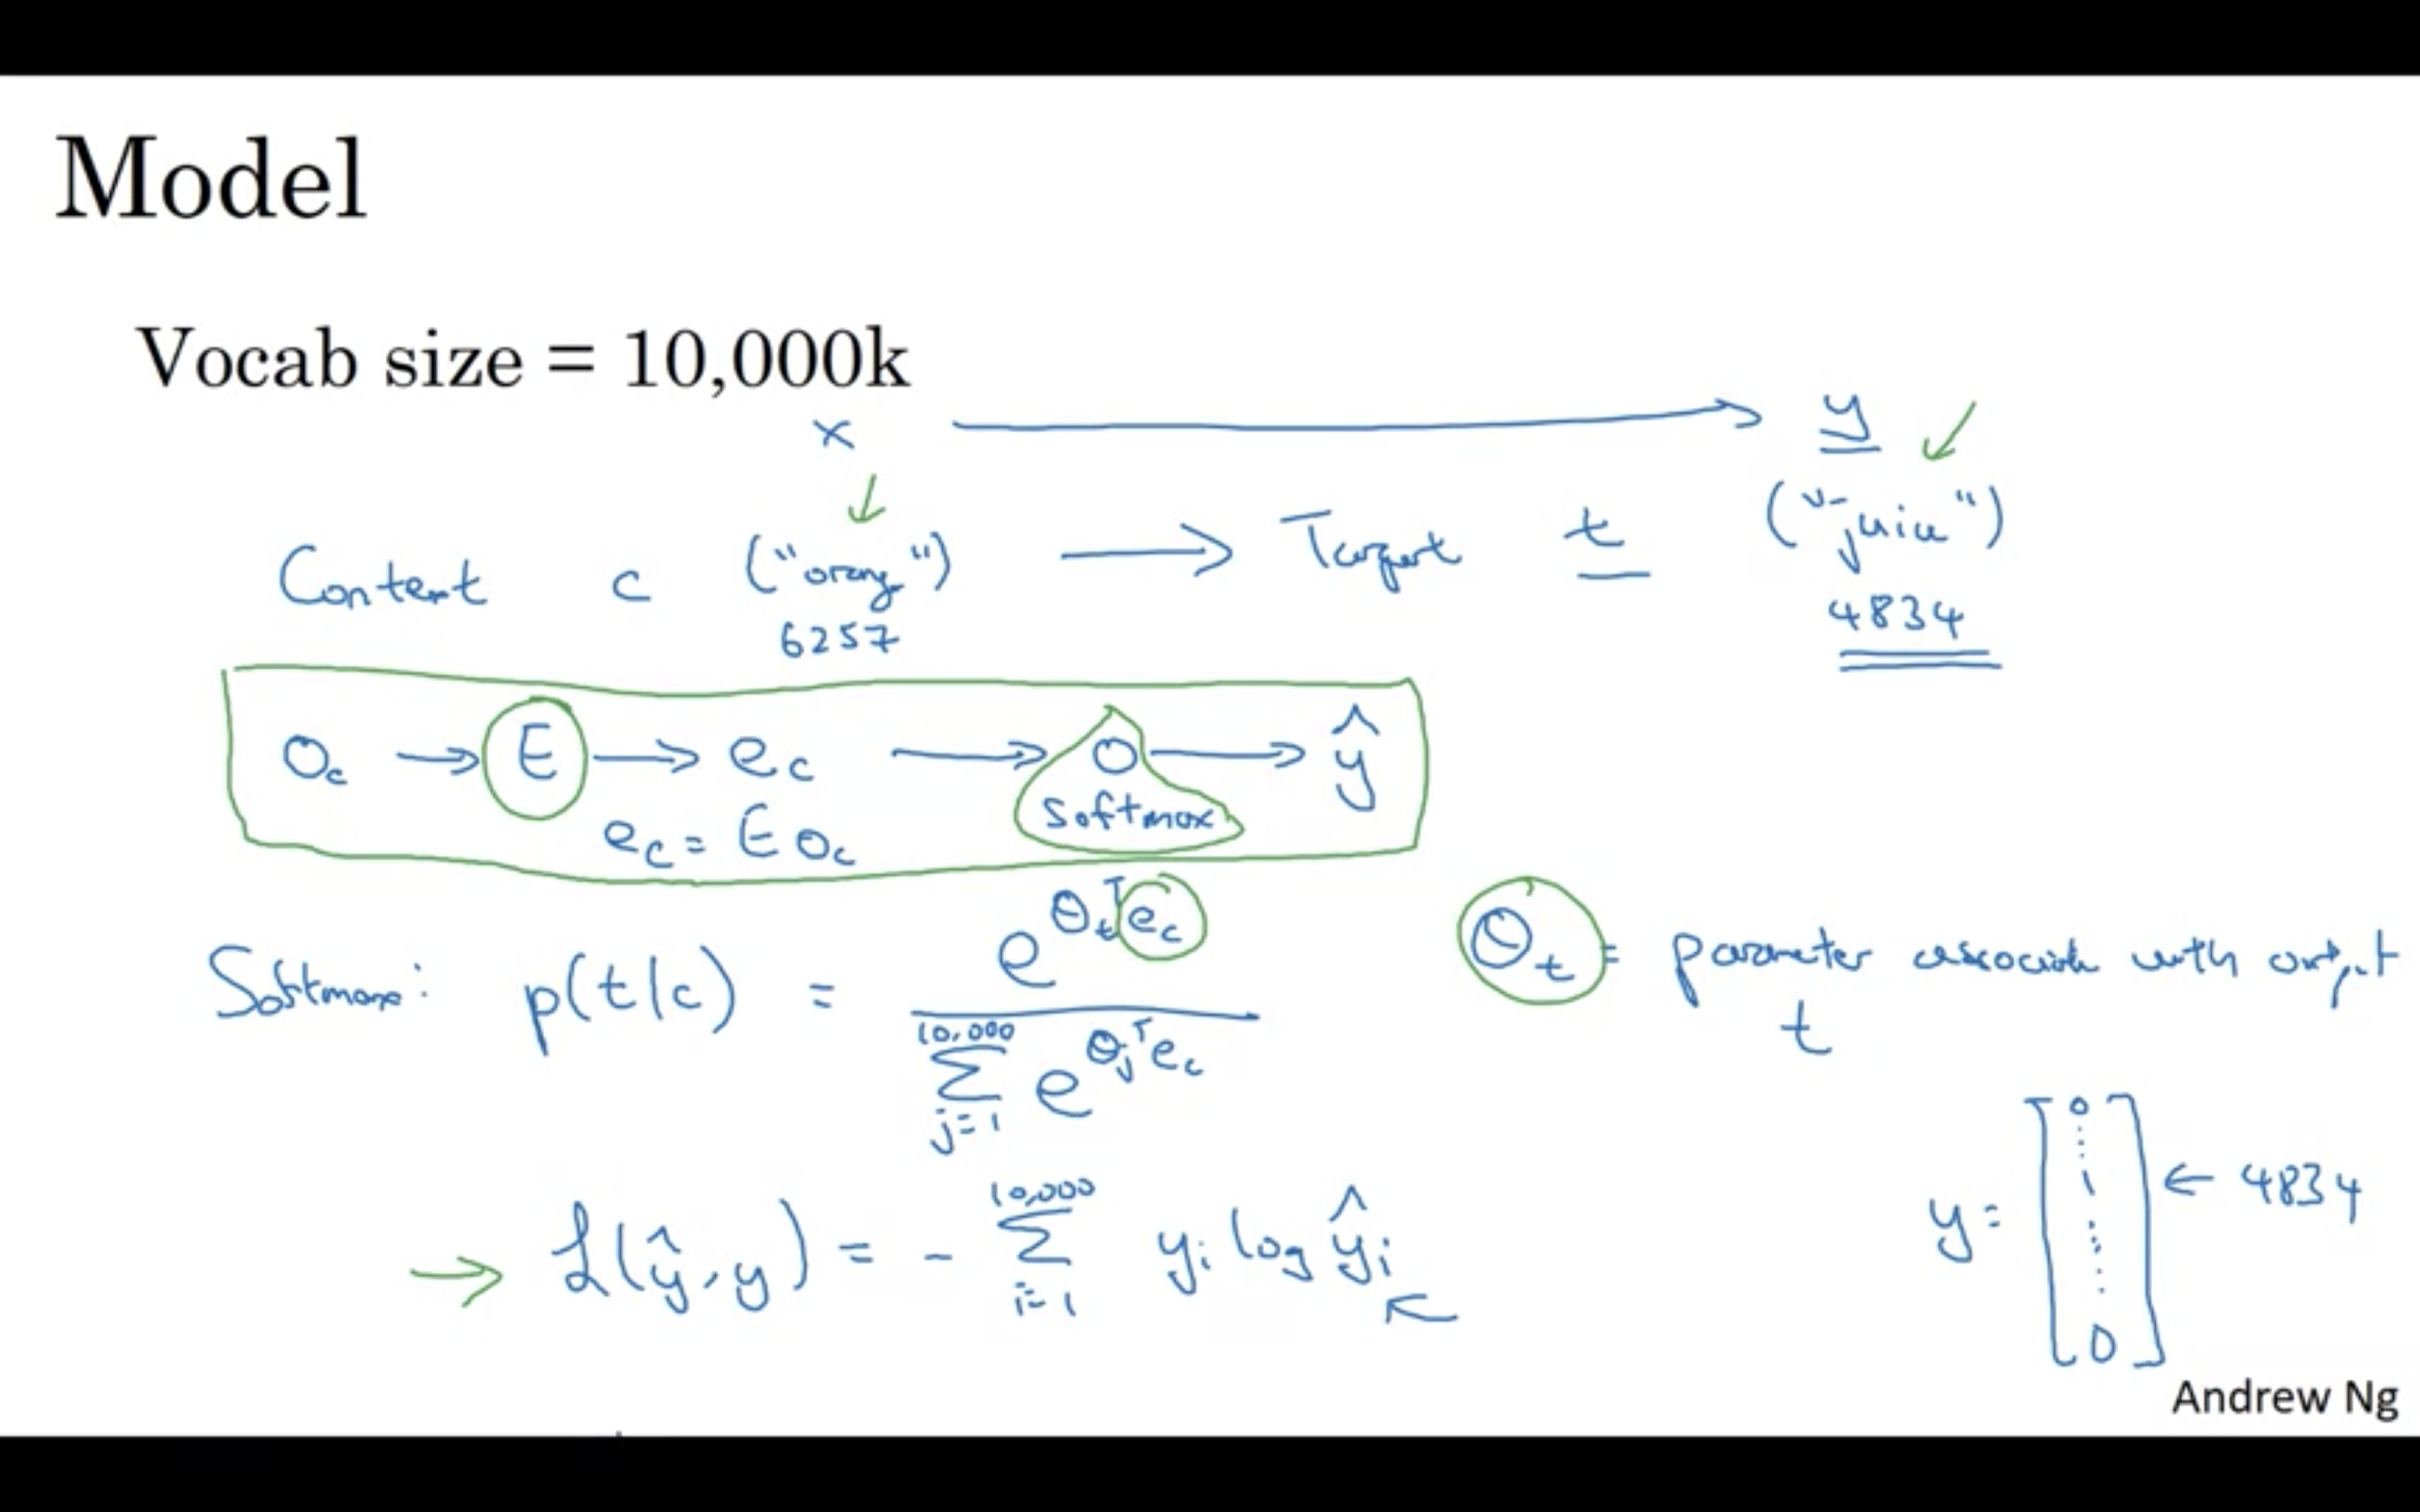 Model
Vocab size = 10,000k
x → y
Context c ("orange") → Target t ("juice")
6257 4834
O_c → E → e_c → o → ŷ
softmax
e_c = E o_c
Softmax: p(t|c) = e^{θ_t^T e_c} / Σ_{j=1}^{10,000} e^{θ_j^T e_c}
θ_t = parameter associate with output
t
→ ℒ(ŷ, y) = - Σ_{i=1}^{10,000} y_i log ŷ_i ←
y = [0 ⋮ 1 ⋮ 0] ← 4834
Andrew Ng